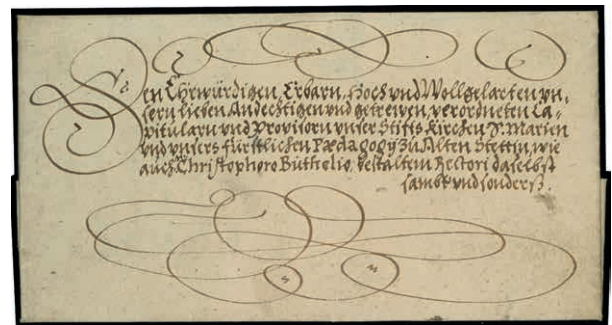 Den Ehrwürdigen, Erbarn, Hoch vnd Wollgelarten vn,
sern lieben Andechtigen vnd getrewen, verordneten Ca,
pitularn vnd Provisorn vnser Stifts Kirchen S. Marien
vnd vnsers fürstlichen Pædagogÿ zu Alten Stettin, wie
auch Christophoro Buthelio, bestaltem Rectori daselbst
sambt vnd sonderß.